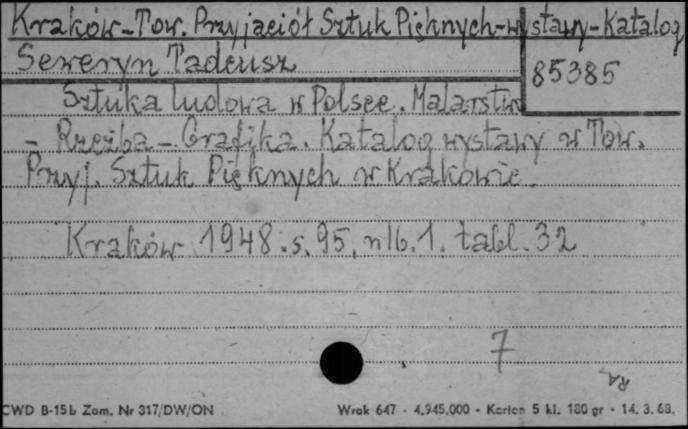 Kraków-Tow. Przyjaciół Sztuk Pięknych-wystawy-Katalog
Seweryn Tadeusz
85385
Sztuka ludowa w Polsce. Malarstwo
- Rzeźba - Grafika. Katalog wystawy w Tow.
Przyj. Sztuk Pięknych w Krakowie.
Kraków 1948. s. 95, nlb. 1. tabl. 32
7
CWD B-15b Zam. Nr 317/DW/ON
Wrok 647 - 4.945.000 - Karton 5 kl. 180 gr - 14. 3. 68.